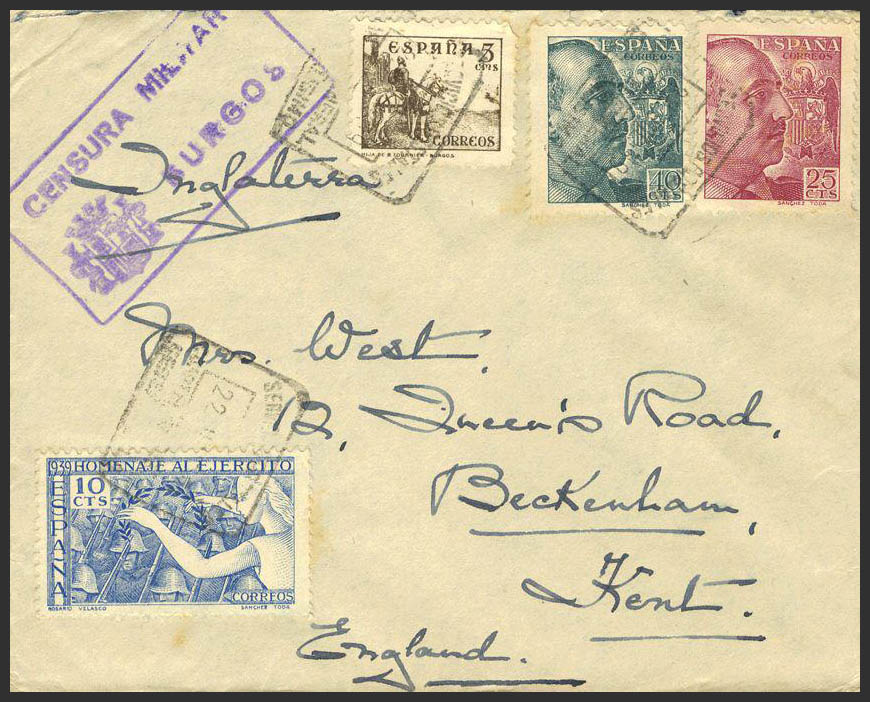 CENSURA MILITAR
BURGOS
ESPAÑA 5
CTMS
CORREOS
HIJA DE B. FOURNIER - BURGOS.
ESPAÑA
CORREOS
40
CTS
SANCHEZ TODA
ESPAÑA
CORREOS
25
CTS
SANCHEZ TODA
Inglaterra
Mrs. West
12, Queen's Road,
Beckenham,
Kent.
England.
22
1939 HOMENAJE AL EJERCITO
ESPAÑA
10
CTS
CORREOS
ROSARIO VELASCO SANCHEZ TODA